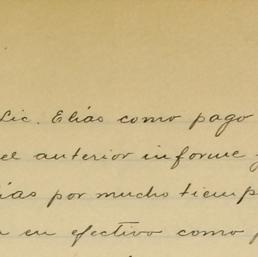 Lic. Elías como pago
el anterior informe
ías por mucho tiemp
en efectivo como p